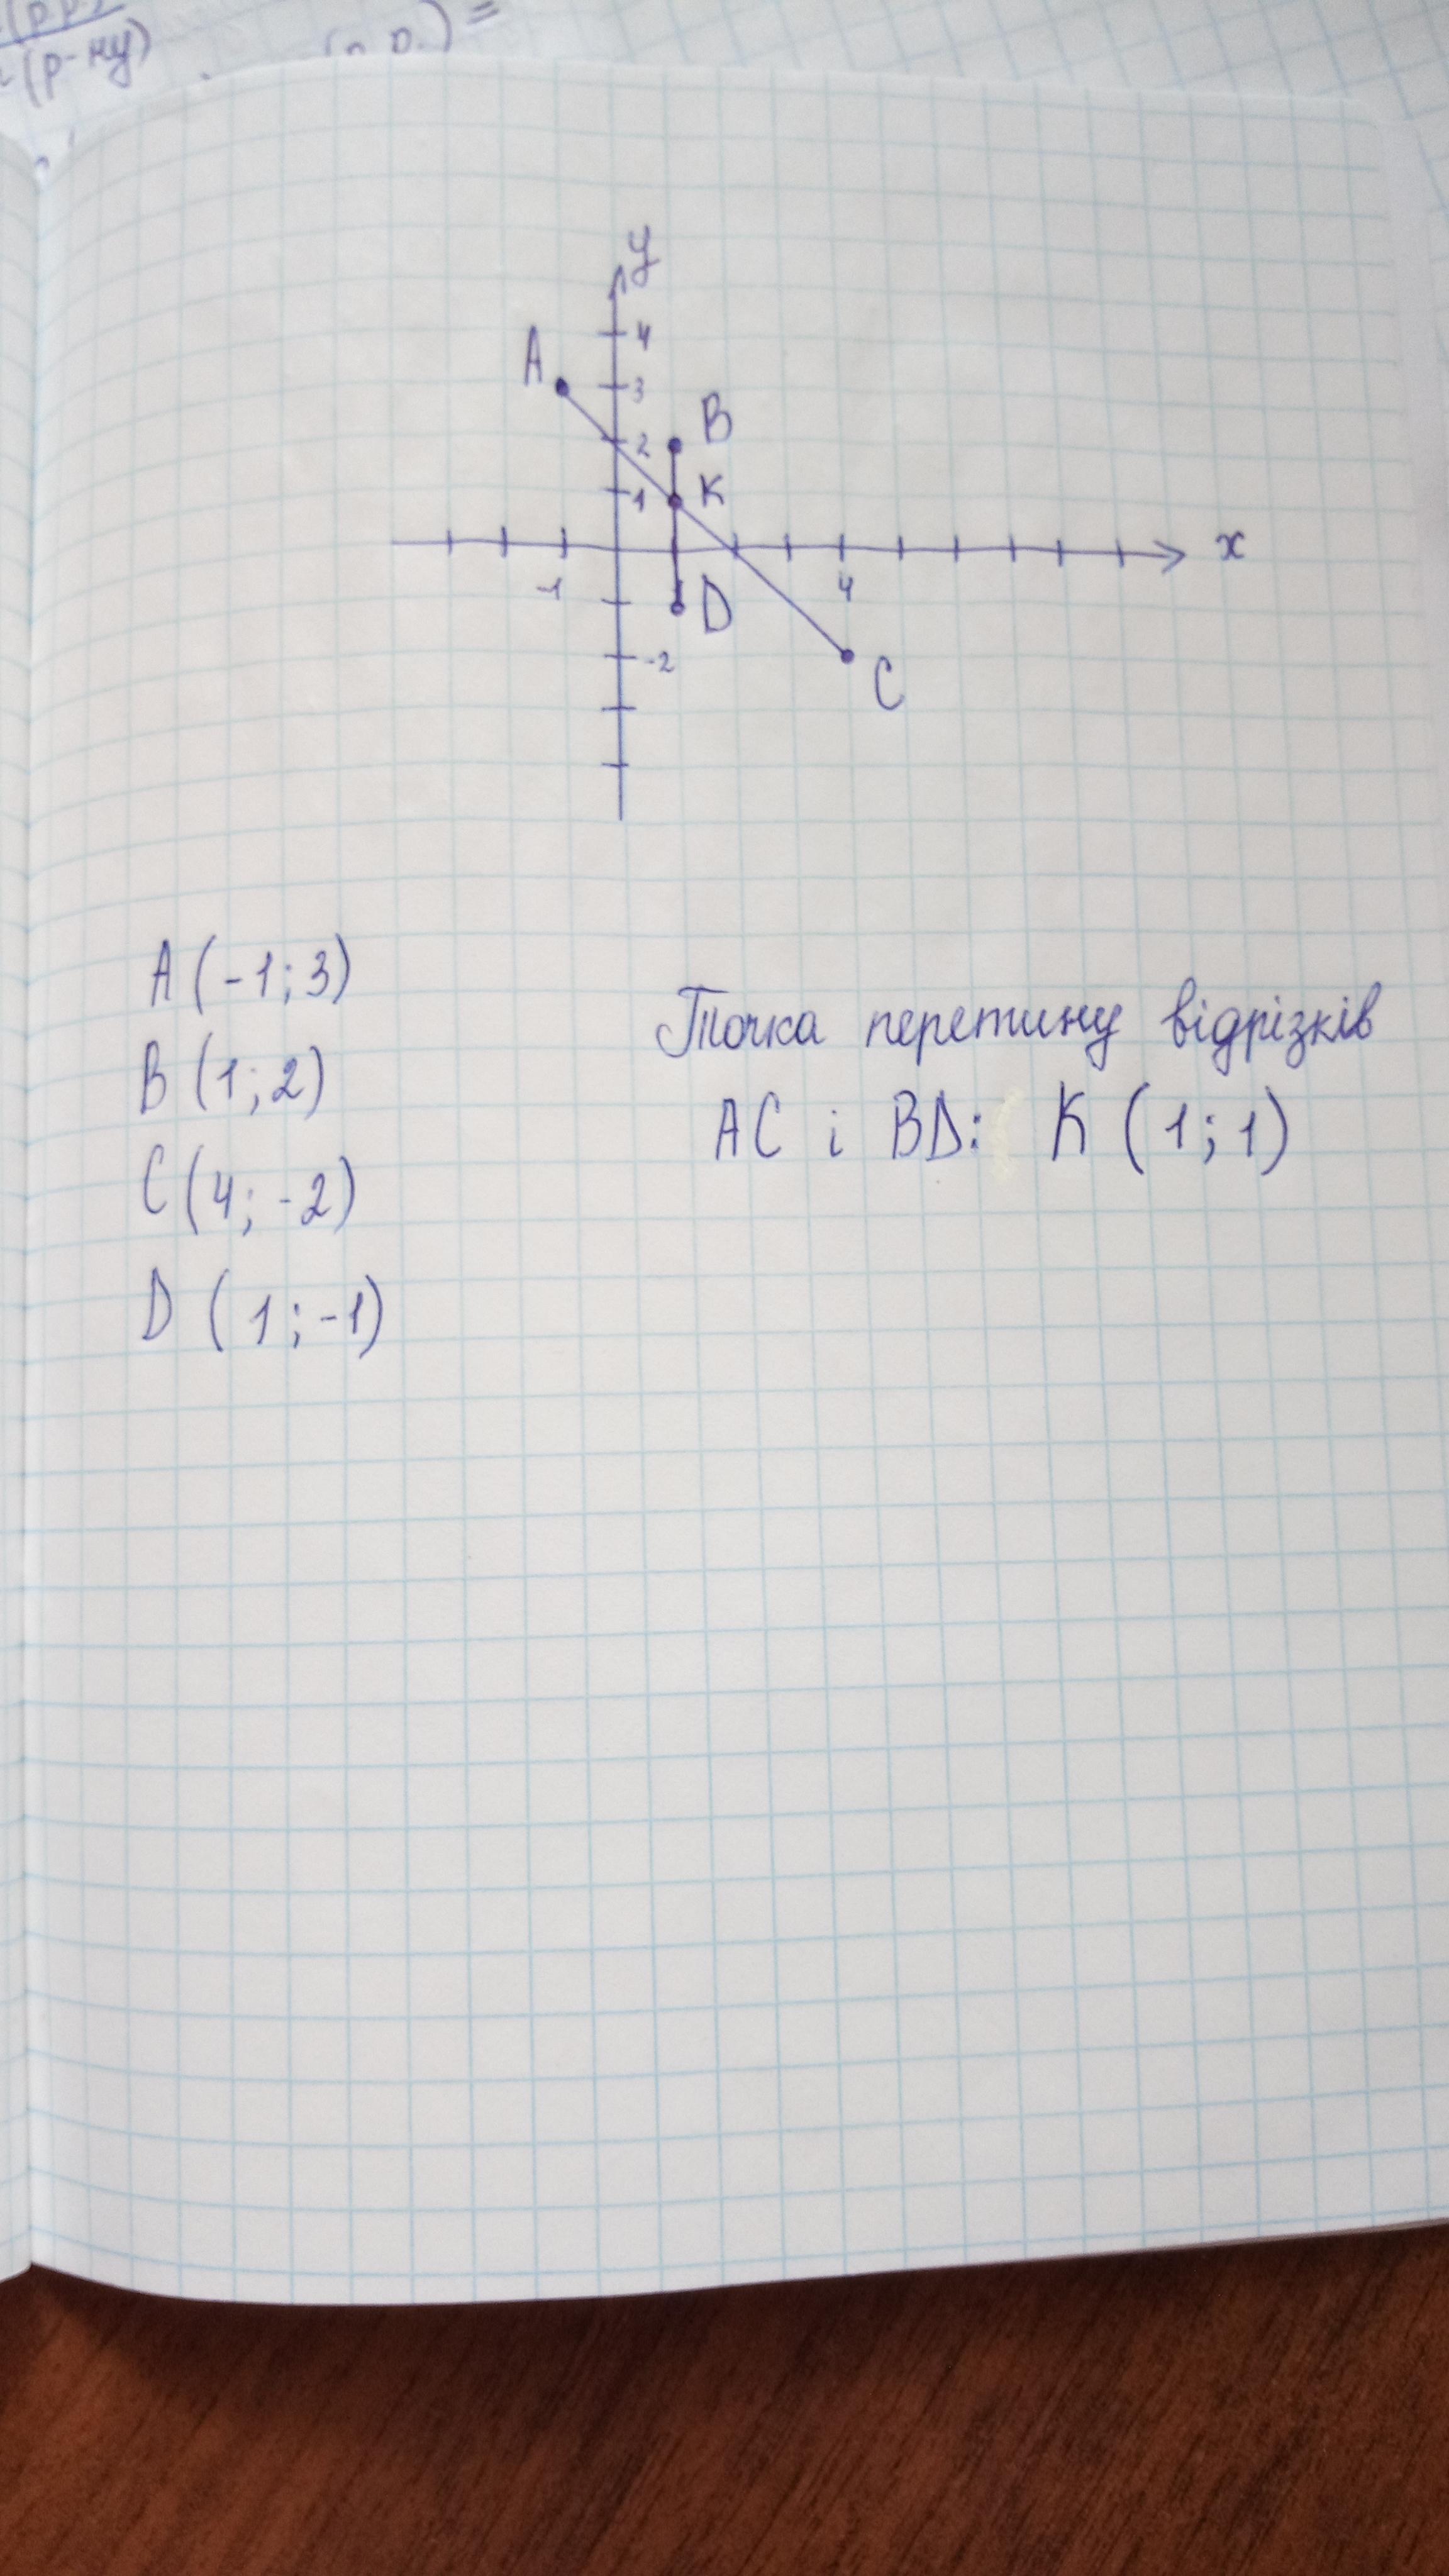 (р-ну)
y
4
A
3
B
2
1
K
x
-1
4
D
-2
C
A (-1; 3)
B (1; 2)
C (4; -2)
D (1; -1)
Точка перетину відрізків
AC і BD: K (1; 1)